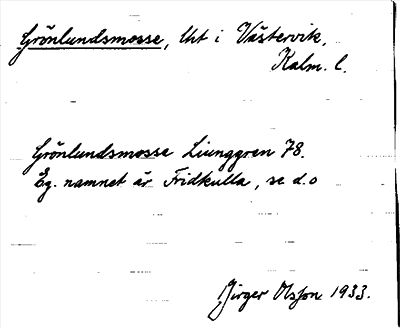 Grönlundsmosse, lht i Västervik,
Kalm. l.
Grönlundsmosse Ljunggren 78.
Eg. namnet är Fridkulla, se d.o
Birger Olsson 1933.